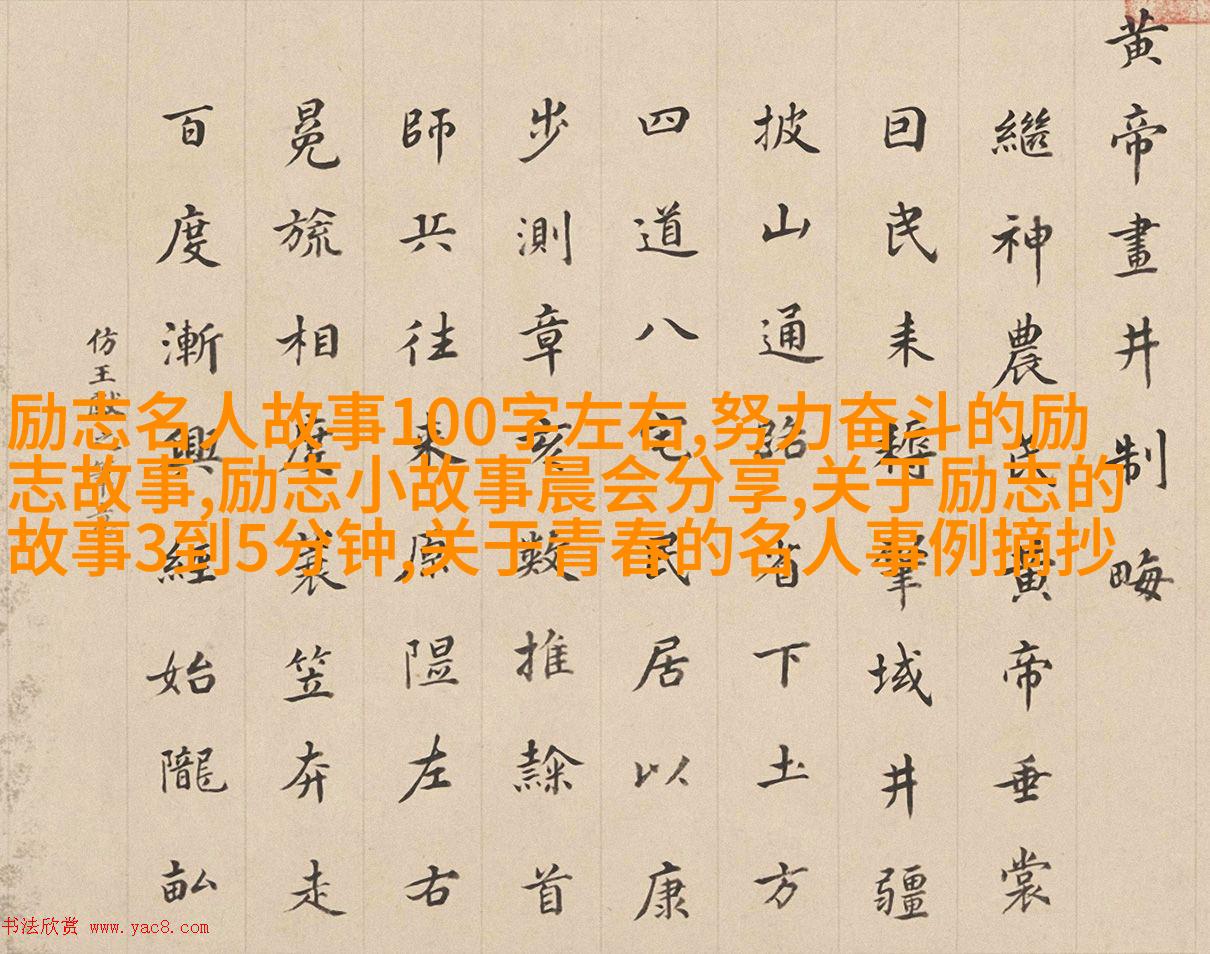 励志名人故事100字左右,努力奋斗的励
志故事,励志小故事晨会分享,关于励志的
故事3到5分钟,关于青春的名人事例摘抄
黃帝畫井制畮
繼神農氏黃帝垂裳
囙民耒耨肇域井疆
披山通路省下土方
四道八宅民居以康
步測章亥數推隸首
師兵往來原隰左右
冕旒相度蓑笠奔走
百度漸興經始隴畝
仿王獻之
书法欣赏 www.yac8.com